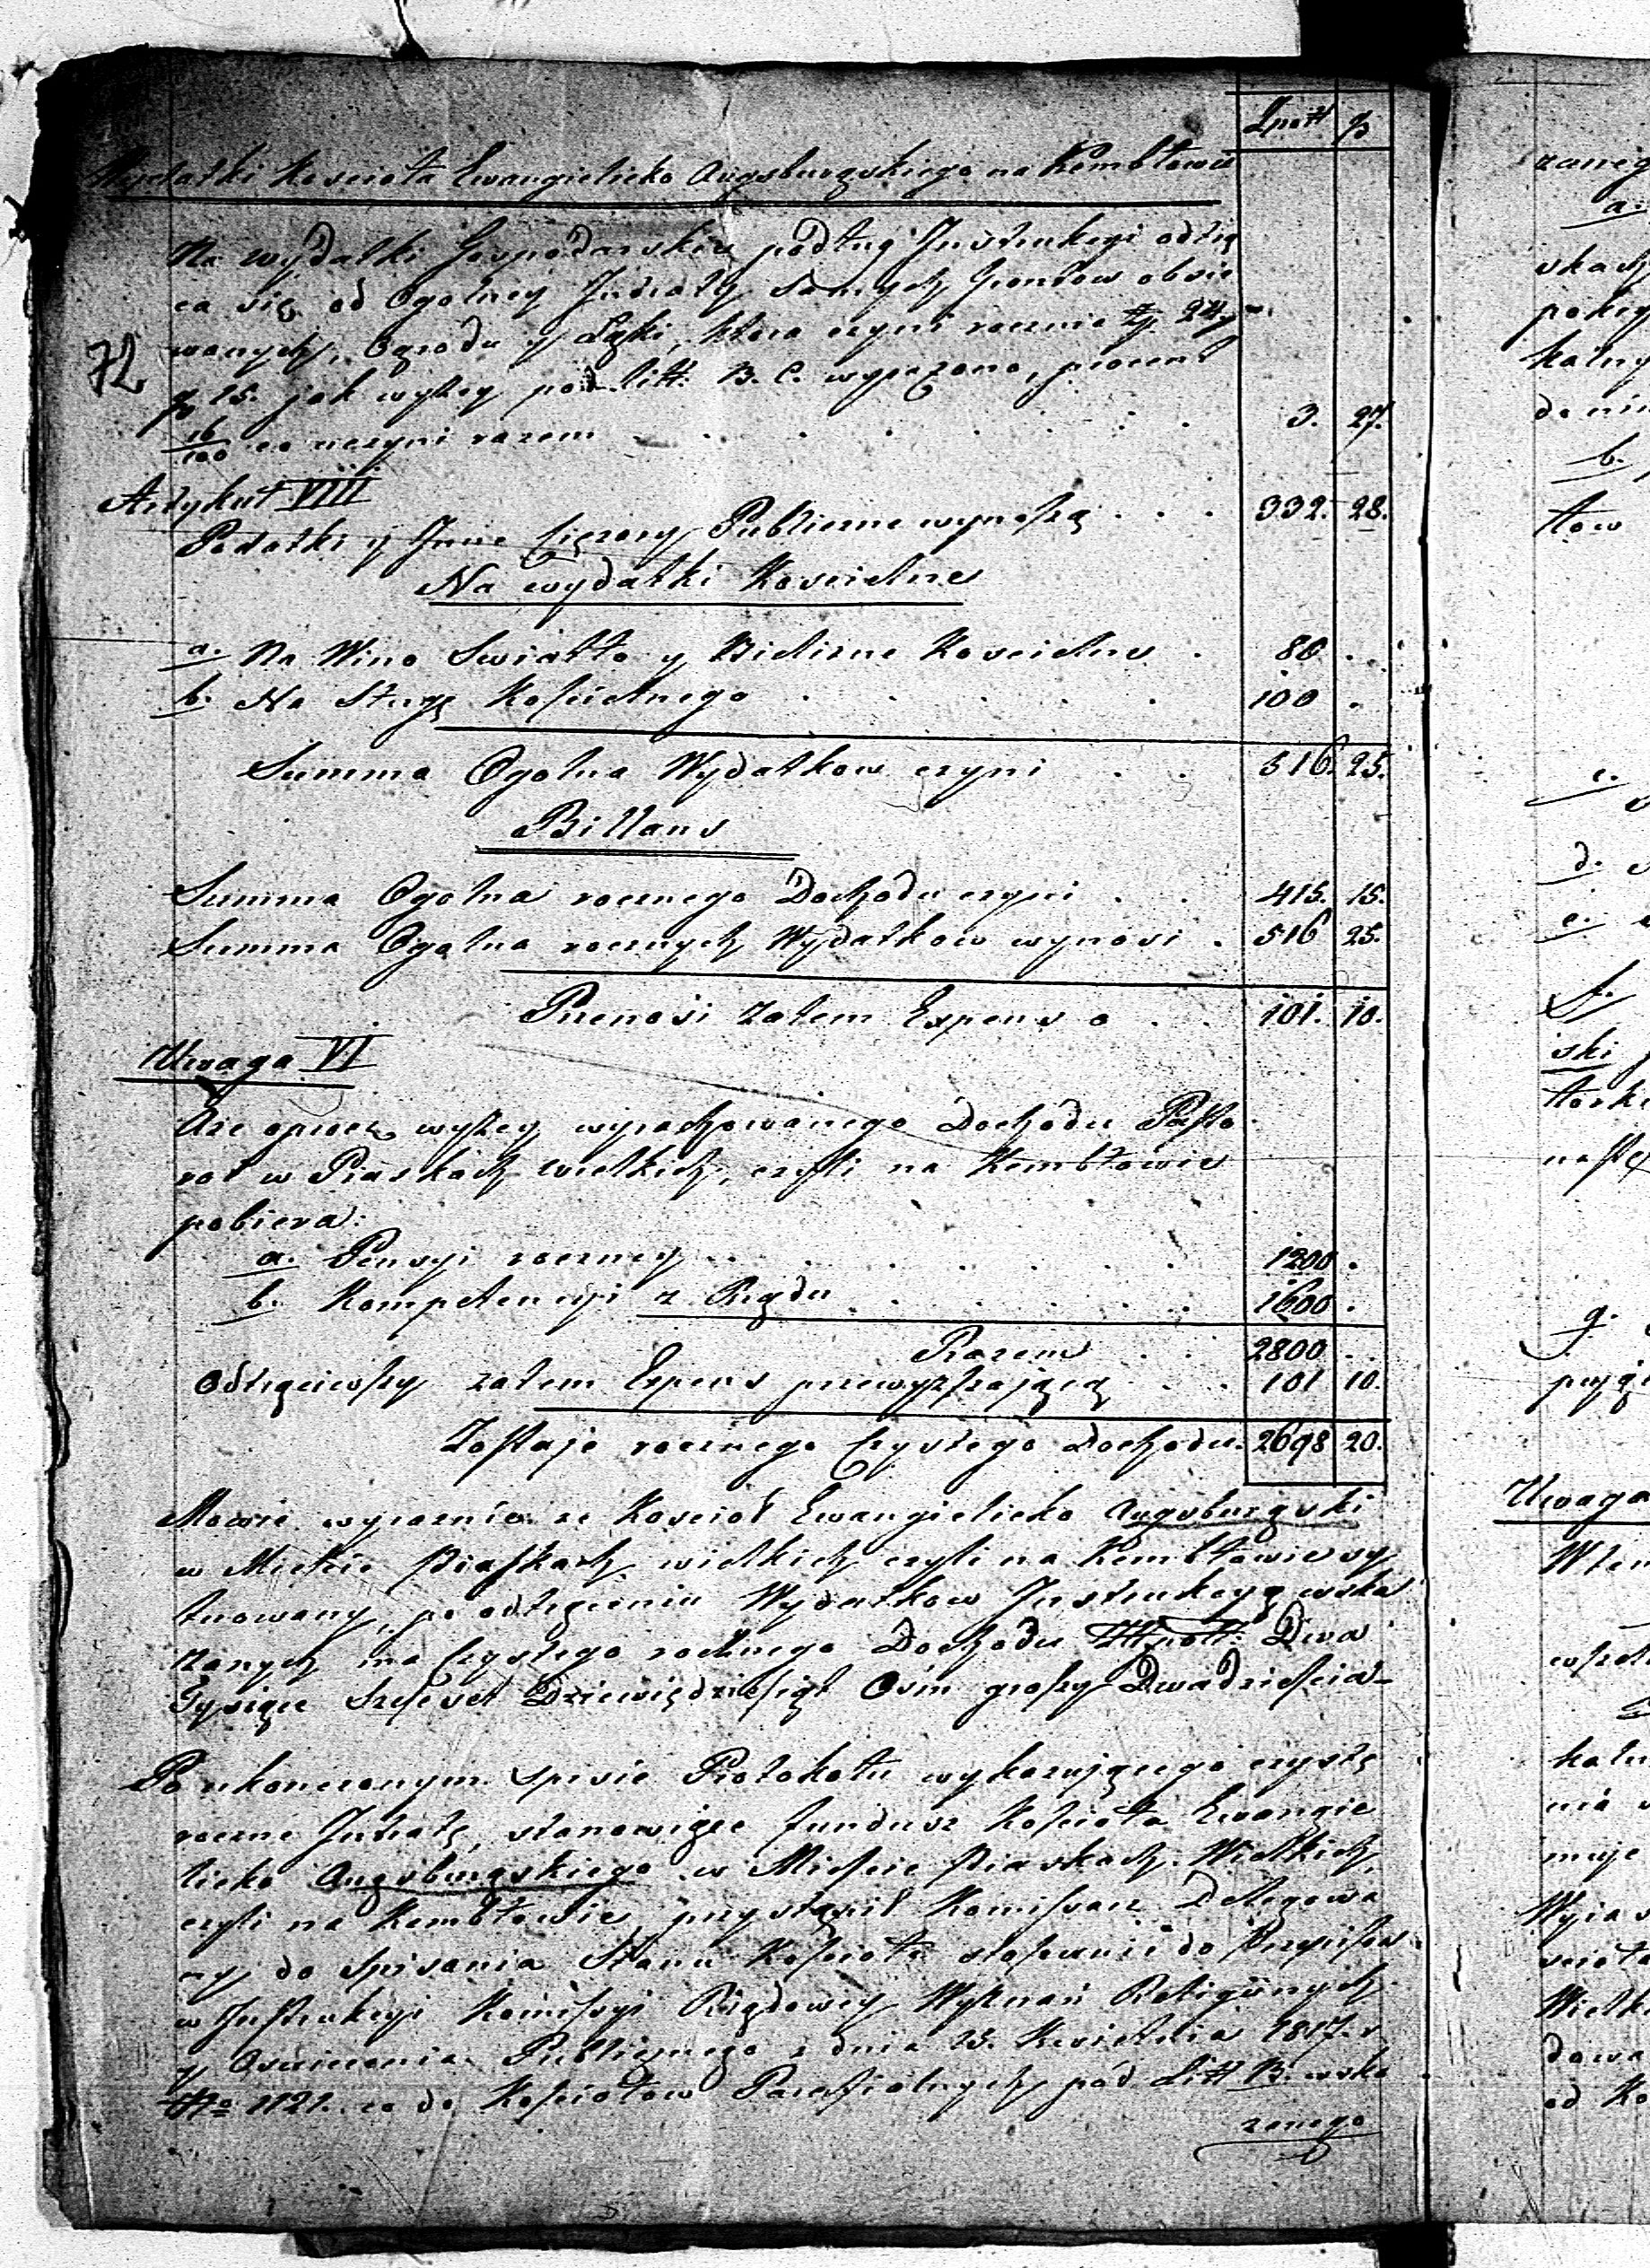 Zpoll gr
Wydatki Kosciota Ewangielicko Augsburgskiego na Kembłowie
Na wydatki Gospodarskie podług Instrukcyi odtrą
ca się od Ogolney Intraty samych Grontow obsie
wanych, Ogrodu y Łąki, ktora czyni rocznie zł. 24
gr 15. jak wyżey pod litt: B. C. wyrażono, procent
16/100 co uczyni razem . . . . . . 3. 27.
72
Artykuł VIII
Podatki y Inne Ciężary Publiczne wynoszą . . . 332. 28.
Na wydatki Koscielne
a. Na Wino Swiatło y Bielizne Koscielne . 80 .
b. Na Sługę Koscielnego . . . . 100 .
Summa Ogolna Wydatkow czyni . . 516. 25.
Billans
Summa Ogolna rocznego Dochodu czyni . . 415. 15.
Summa Ogolna rocznych Wydatkow wynosi . 516 25.
Przenosi zatem Expens o . . 101. 10.
Uwaga VI
Aże oprocz wyżey wyrachowanego Dochodu Pasto
rat w Piaskach wielkich, czyli na Kembłowie
pobiera:
a. Pensyi roczney . . . . . . 1200 .
b. Kompetencyi z Rządu . . . . . 1600 .
Razem . . 2800 .
Odtrąciwszy zatem Expens przewyższającą . . 101 10.
Zostaje rocznego Czystego Dochodu. 2698 20.
Mowie wyraznie że Kosciół Ewangielicko Augsburgski
w Miescie Piaskach wielkich czyli na Kembłowie sy
tuowany, po odtrąceniu Wydatkow Instrukcyą wska
zanych ma Czystego rocznego Dochodu Złpoll: Dwa
Tysiące Szescset Dziewiędziesiąt Osm groszy Dwadziescia
Po ukonczonym spisie Protokołu wykazującego czystą
roczne Intratę, stanowiące fundusz Kosciota Ewangie
licko Augsburgskiego w Miescie Piaskach Wielkich,
czyli na Kembłowie, przystąpił Komissarz Delegowa
ny do spisania Stanu Kosciota stosownie do Przepisow
w Instrukcyi Komissyi Rządowey Wyznań Religiinych
y Oswiecenia Publicznego z dnia 15. Kwietnia 1817. r.
No 1121. co do Kosciołow Parafialnych pod Litt B. wska
zanego